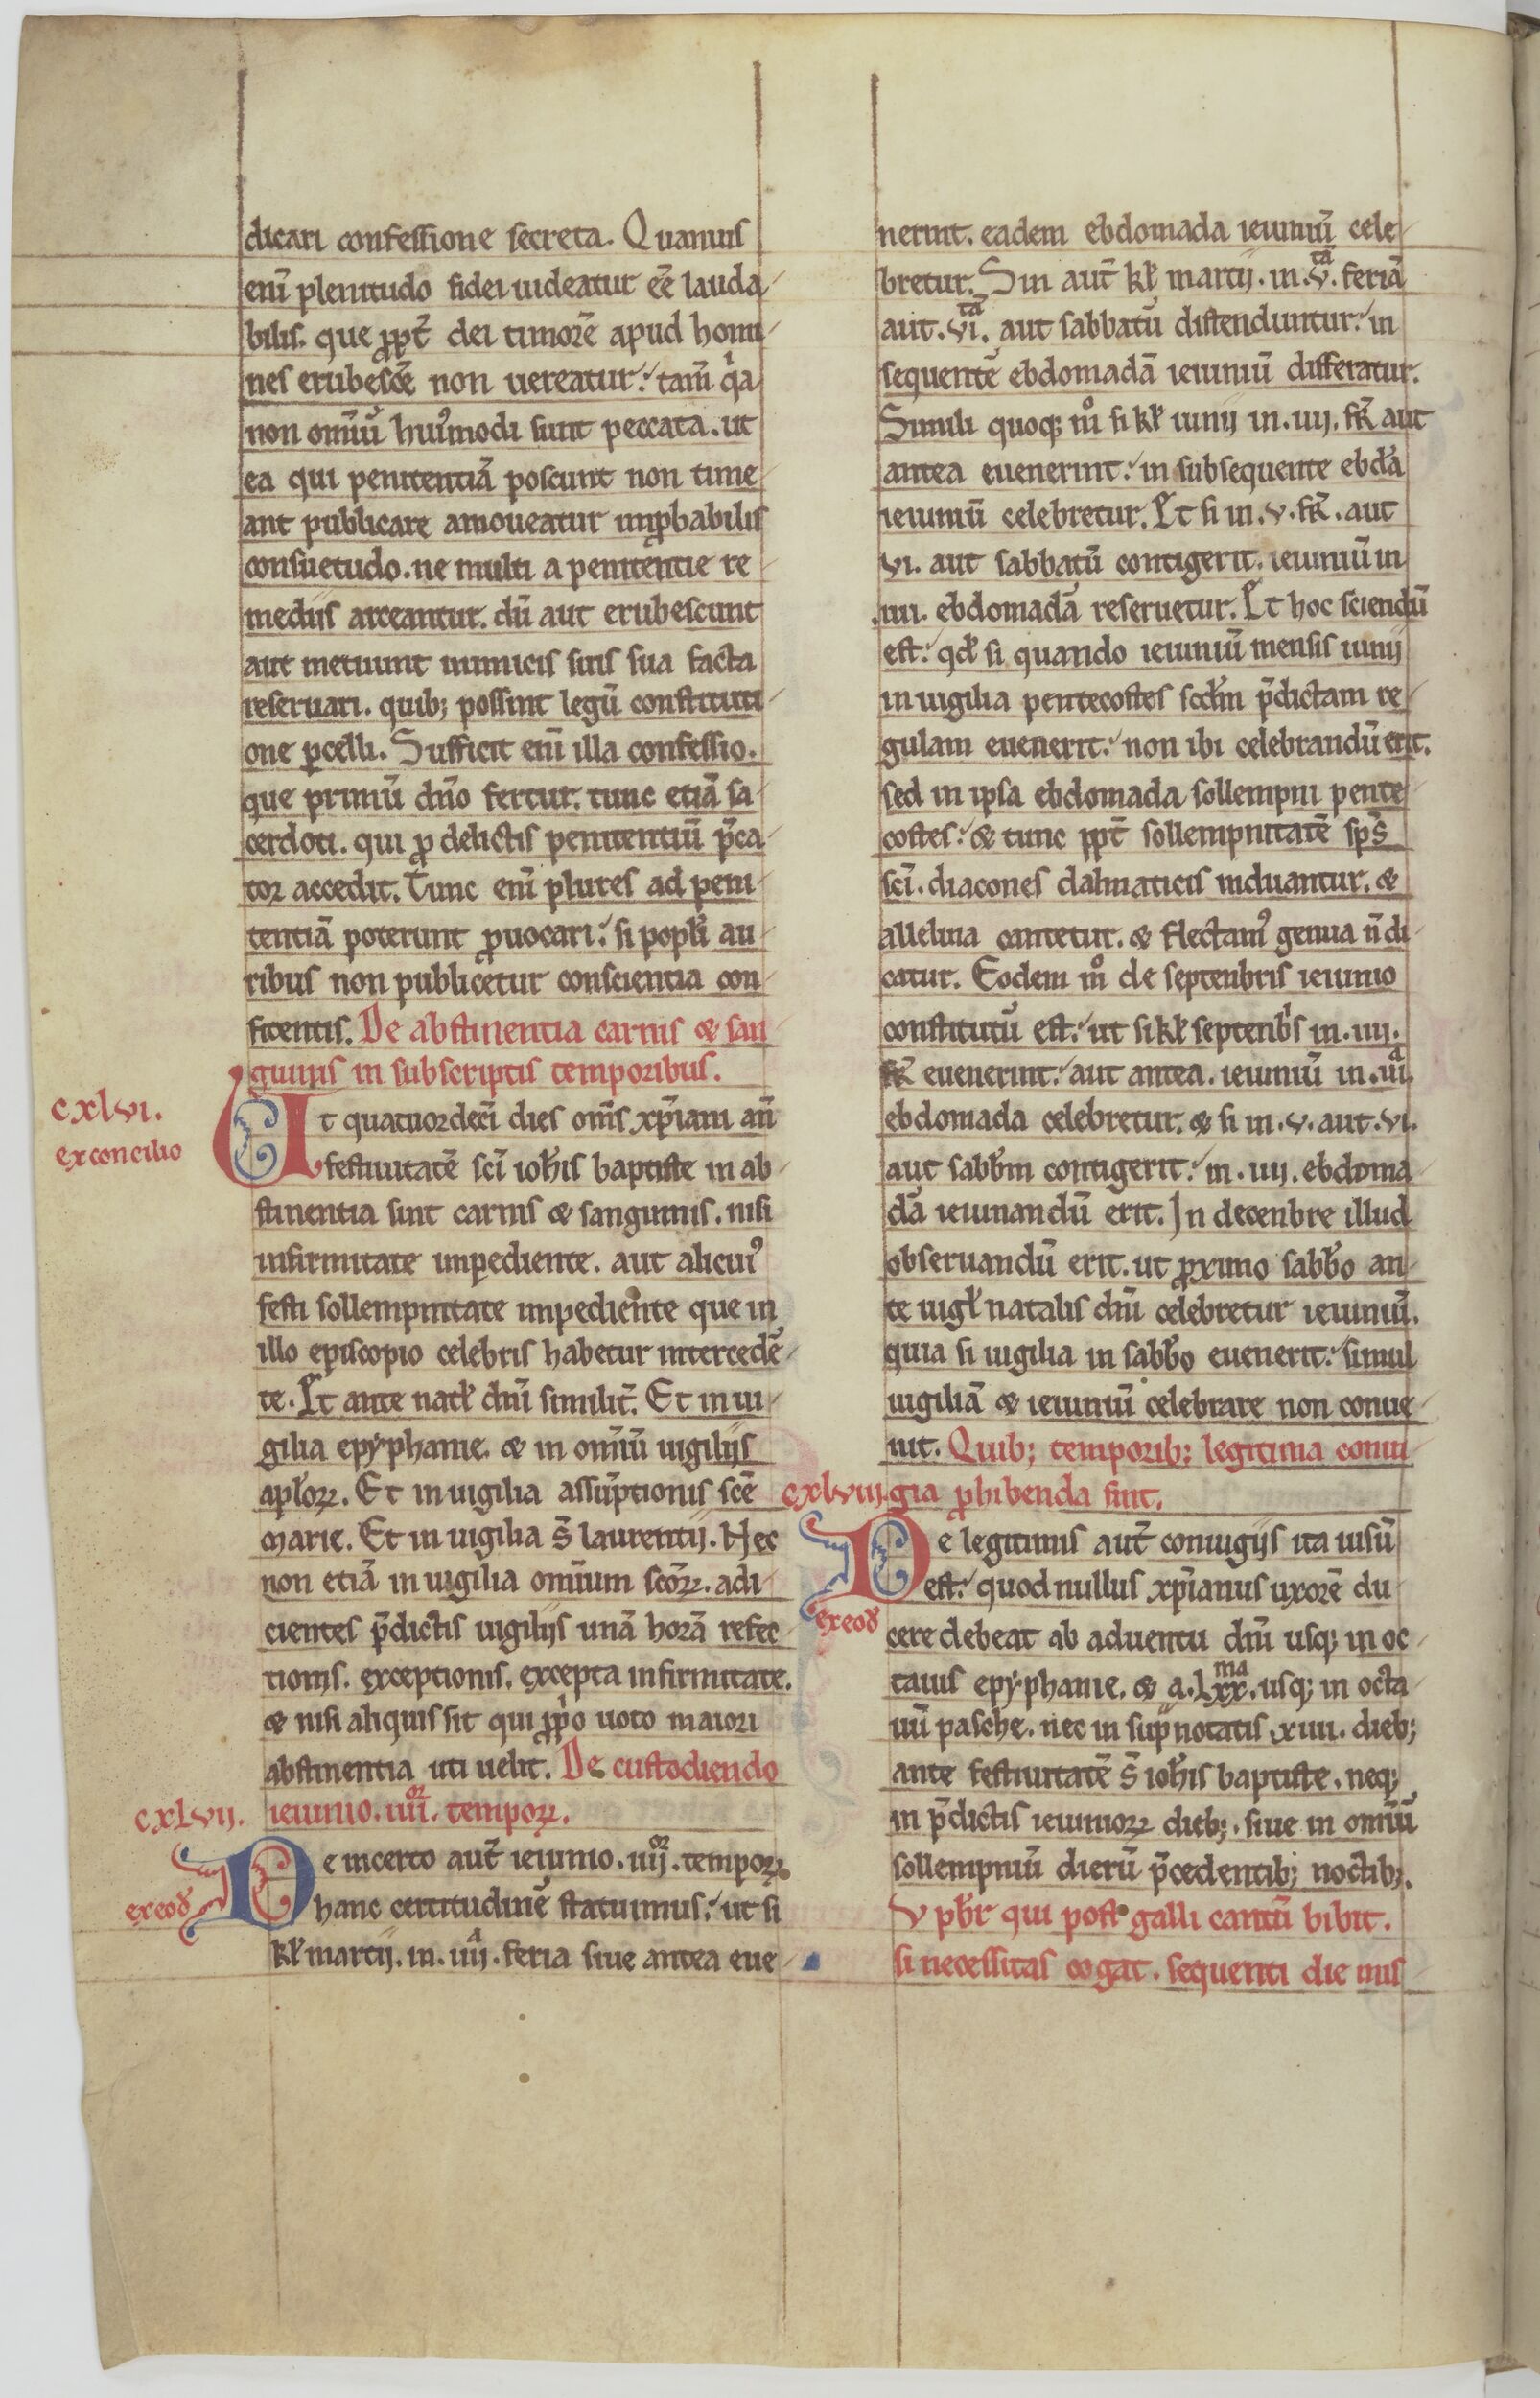 dicari confessione secreta. Quamuis
eni̅ plenitudo fidei uideatur ee̅ lauda
bilis. que ꝓpt̅ dei timore̅ apud homi
nes erubesce̅ non uereatur. tam̅ qͥa
non omiu̅ huiꝰmodi sunt peccata. ut
ea qui penitentia̅ poscunt non time
ant publicare amoueatur imꝓbabilis
consuetudo. ne multi a penitentie re
mediis arceantur. du̅ aut erubescunt
aut metuunt inimicis suis sua facta
reseruari. quib; possint legu̅ constituti
one ꝑcelli. Sufficit eni̅ illa confessio.
que primu̅ dn̅o fertur. tunc etia̅ sa
cerdoti. qui ꝓ delictis penitentiu̅ p̅ca
tor accedit. Tunc eni̅ plures ad peni
tentia̅ poterunt ꝓuocari. si popl̅i au
ribus non publicetur conscientia con
fitentis. De abstinentia carnis & san
guinis in subscriptis temporibus.
cxlvi.
ex concilio
Ut quatuordeci̅ dies om̅s xp̅iani an̅
festiuitate̅ sci̅ ioh̅is baptiste in ab
stinentia sint carnis & sanguinis. nisi
infirmitate impediente. aut alicuiꝰ
festi sollempnitate impediente que in
illo episcopio celebris habetur intercede̅
te. Et ante natl̅ dn̅i similit̅. Et in ui
gilia epyphanie. & in omiu̅ uigiliis
apl̅oꝝ. Et in uigilia assu̅ptionis sce̅
marie. Et in uigilia s̅ laurentij. Nec
non etia̅ in uigilia omium sco̅ꝝ. adi
cientes p̅dictis uigiliis una̅ hora̅ refec
tionis. exceptionis. excepta infirmitate.
& nisi aliquis sit qui ꝓpͥo uoto maiori
abstinentia uti uelit. De custodiendo
cxlvii. ieiunio. iiiiᵒʳ. tempoꝝ.
De incerto aut̅ ieiunio. iiijᵒʳ. tempoꝝ
exeod̅ hanc certitudine̅ statuimus. ut si
kl̅ martij. in. iiijᵃ. feria siue antea eue
nerint. eadem ebdomada ieiuniu̅ cele
bretur. Sin aut̅ kl̅ martij. in. v̅ᵗᵃ. feria̅
aut. viᵗᵃ. aut sabbatu̅ distenduntur. in
sequente̅ ebdomada̅ ieiuniu̅ differatur.
Simili quoq; mͦ si kl̅ iunij in. iiij. fr̅ aut
antea euenerint. in subsequente ebd̅a
ieiuniu̅ celebretur. Et si in. v. fr̅. aut
vi. aut sabbatu̅ contigerit. ieiuniu̅ in
.iiii. ebdomada̅ reseruetur. Et hoc sciendu̅
est. qd̅ si quando ieiuniu̅ mensis iunij
in uigilia pentecostes scd̅m p̅dictam re
gulam euenerit. non ibi celebrandu̅ erit.
sed in ipsa ebdomada sollempni pente
costes. & tunc ꝓpt̅ sollempnitate̅ sp̅s
sci̅. diacones dalmaticis induantur. &
alleluia cantetur. & flectamꝰ genua n̅ di
catur. Eodem mͦ de septenbris ieiunio
constitutu̅ est. ut si kl̅ septenbr̅s in. iiij.
fr̅ euenerint. aut antea. ieiuniu̅ in. iiiᵃ.
ebdomada celebretur. & si in. v. aut. vi.
aut sabb̅m contigerit. in. iiij. ebdoma
da̅ ieiunandu̅ erit. In decenbre illud
obseruandu̅ erit. ut ꝓximo sabb̅o an
te uigl̅ natalis dn̅i celebretur ieiuniu̅.
quia si uigilia in sabb̅o euenerit. simul
uigilia̅ & ieiuniu̅ celebrare non conue
nit. Quib; temporib; legitima coniu
cxlviii. gia ꝓhibenda sint.
De legitimis aut̅ coniugiis ita uisu̅
est. quod nullus xp̅ianus uxore̅ du
exeod̅ cere debeat ab aduentu dn̅i usq; in oc
tauis epyphanie. & a. lxxᵐᵃ. usq; in octa
uu̅ pasche. nec in supͣnotatis. xiiii. dieb;
ante festiuitate̅ s̅ ioh̅is baptiste. neq;
in p̅dictis ieiunioꝝ dieb;. siue in omiu̅
sollempniu̅ dieru̅ p̅cedentib; noctib;.
V pb̅r qui post galli cantu̅ bibit.
si necessitas cogat. sequenti die mis